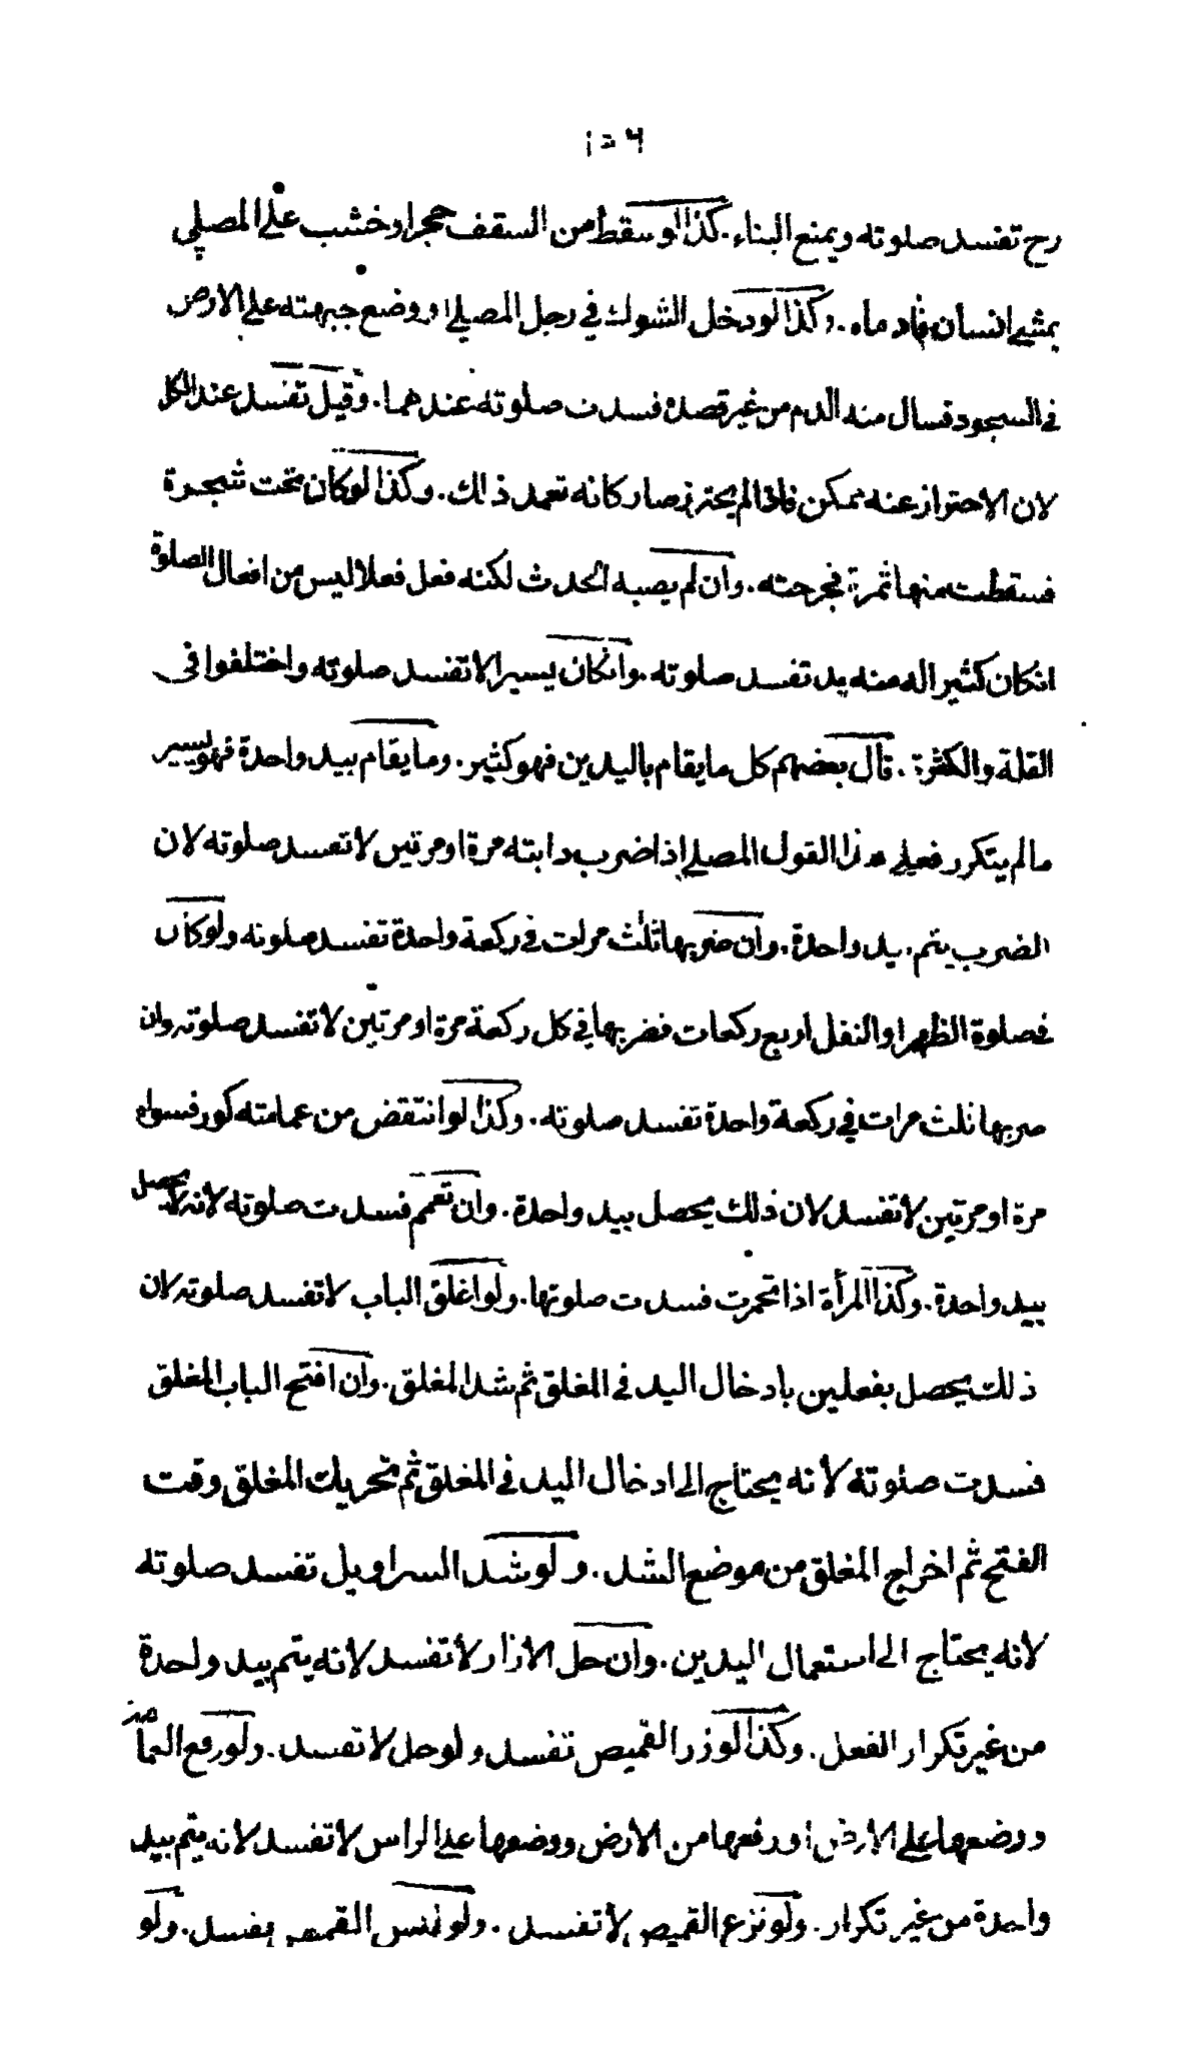 ١٥٦
رح تفسد صلوته ويمنع البناء. كذا لو سقط من السقف حجر او خشب على المصلي
بمشي انسان فادماه. وكذا لو دخل الشوك في رجل المصلي او وضع جبهته على الارض
في السجود فسال منه الدم من غير قصده فسدت صلوته عندهما. وقيل تفسد عند الكل
لان الاحتراز عنه ممكن فاذا لم يحترز صار كانه تعمد ذلك. وكذا لو كان تحت شجرة
فسقطت منها ثمرة فجرحته. وان لم يصبه الحدث لكنه فعل فعلا ليس من افعال الصلوة
انكان كثيرا له منه بد تفسد صلوته. وانكان يسيرا لا تفسد صلوته واختلفوا في
القلة والكثرة. قال بعضهم كل ما يقام باليدين فهو كثير. وما يقام بيد واحدة فهو يسير
ما لم يتكرر فعلى هذا القول المصلي اذا ضرب دابته مرة او مرتين لا تفسد صلوته لان
الضرب يتم بيد واحدة. وان ضربها ثلث مرات في ركعة واحدة تفسد صلوته ولو كان
في صلوة الظهر او النفل اربع ركعات فضربها في كل ركعة مرة او مرتين لا تفسد صلوته وان
ضربها ثلث مرات في ركعة واحدة تفسد صلوته. وكذا لو انتقض من عمامته كور فسواه
مرة او مرتين لا تفسد لان ذلك يحصل بيد واحدة. وان تعمم فسدت صلوته لانه لا يحصل
بيد واحدة. وكذا المرأة اذا تخمرت فسدت صلوتها. ولو اغلق الباب لا تفسد صلوته لان
ذلك يحصل بفعلين بادخال اليد في المغلق ثم شد المغلق. وان افتح الباب المغلق
فسدت صلوته لانه يحتاج الى ادخال اليد في المغلق ثم تحريك المغلق وقت
الفتح ثم اخراج المغلق من موضع الشد. ولو شد السراويل تفسد صلوته
لانه يحتاج الى استعمال اليدين. وان حل الازار لا تفسد لانه يتم بيد واحدة
من غير تكرار الفعل. وكذا لو زر القميص تفسد ولو حل لا تفسد. ولو رفع العمامة
ووضعها على الارض او رفعها من الارض ووضعها على الراس لا تفسد لانه يتم بيد
واحدة من غير تكرار. ولو نزع القميص لا تفسد. ولو لبس القميص يفسد. ولو